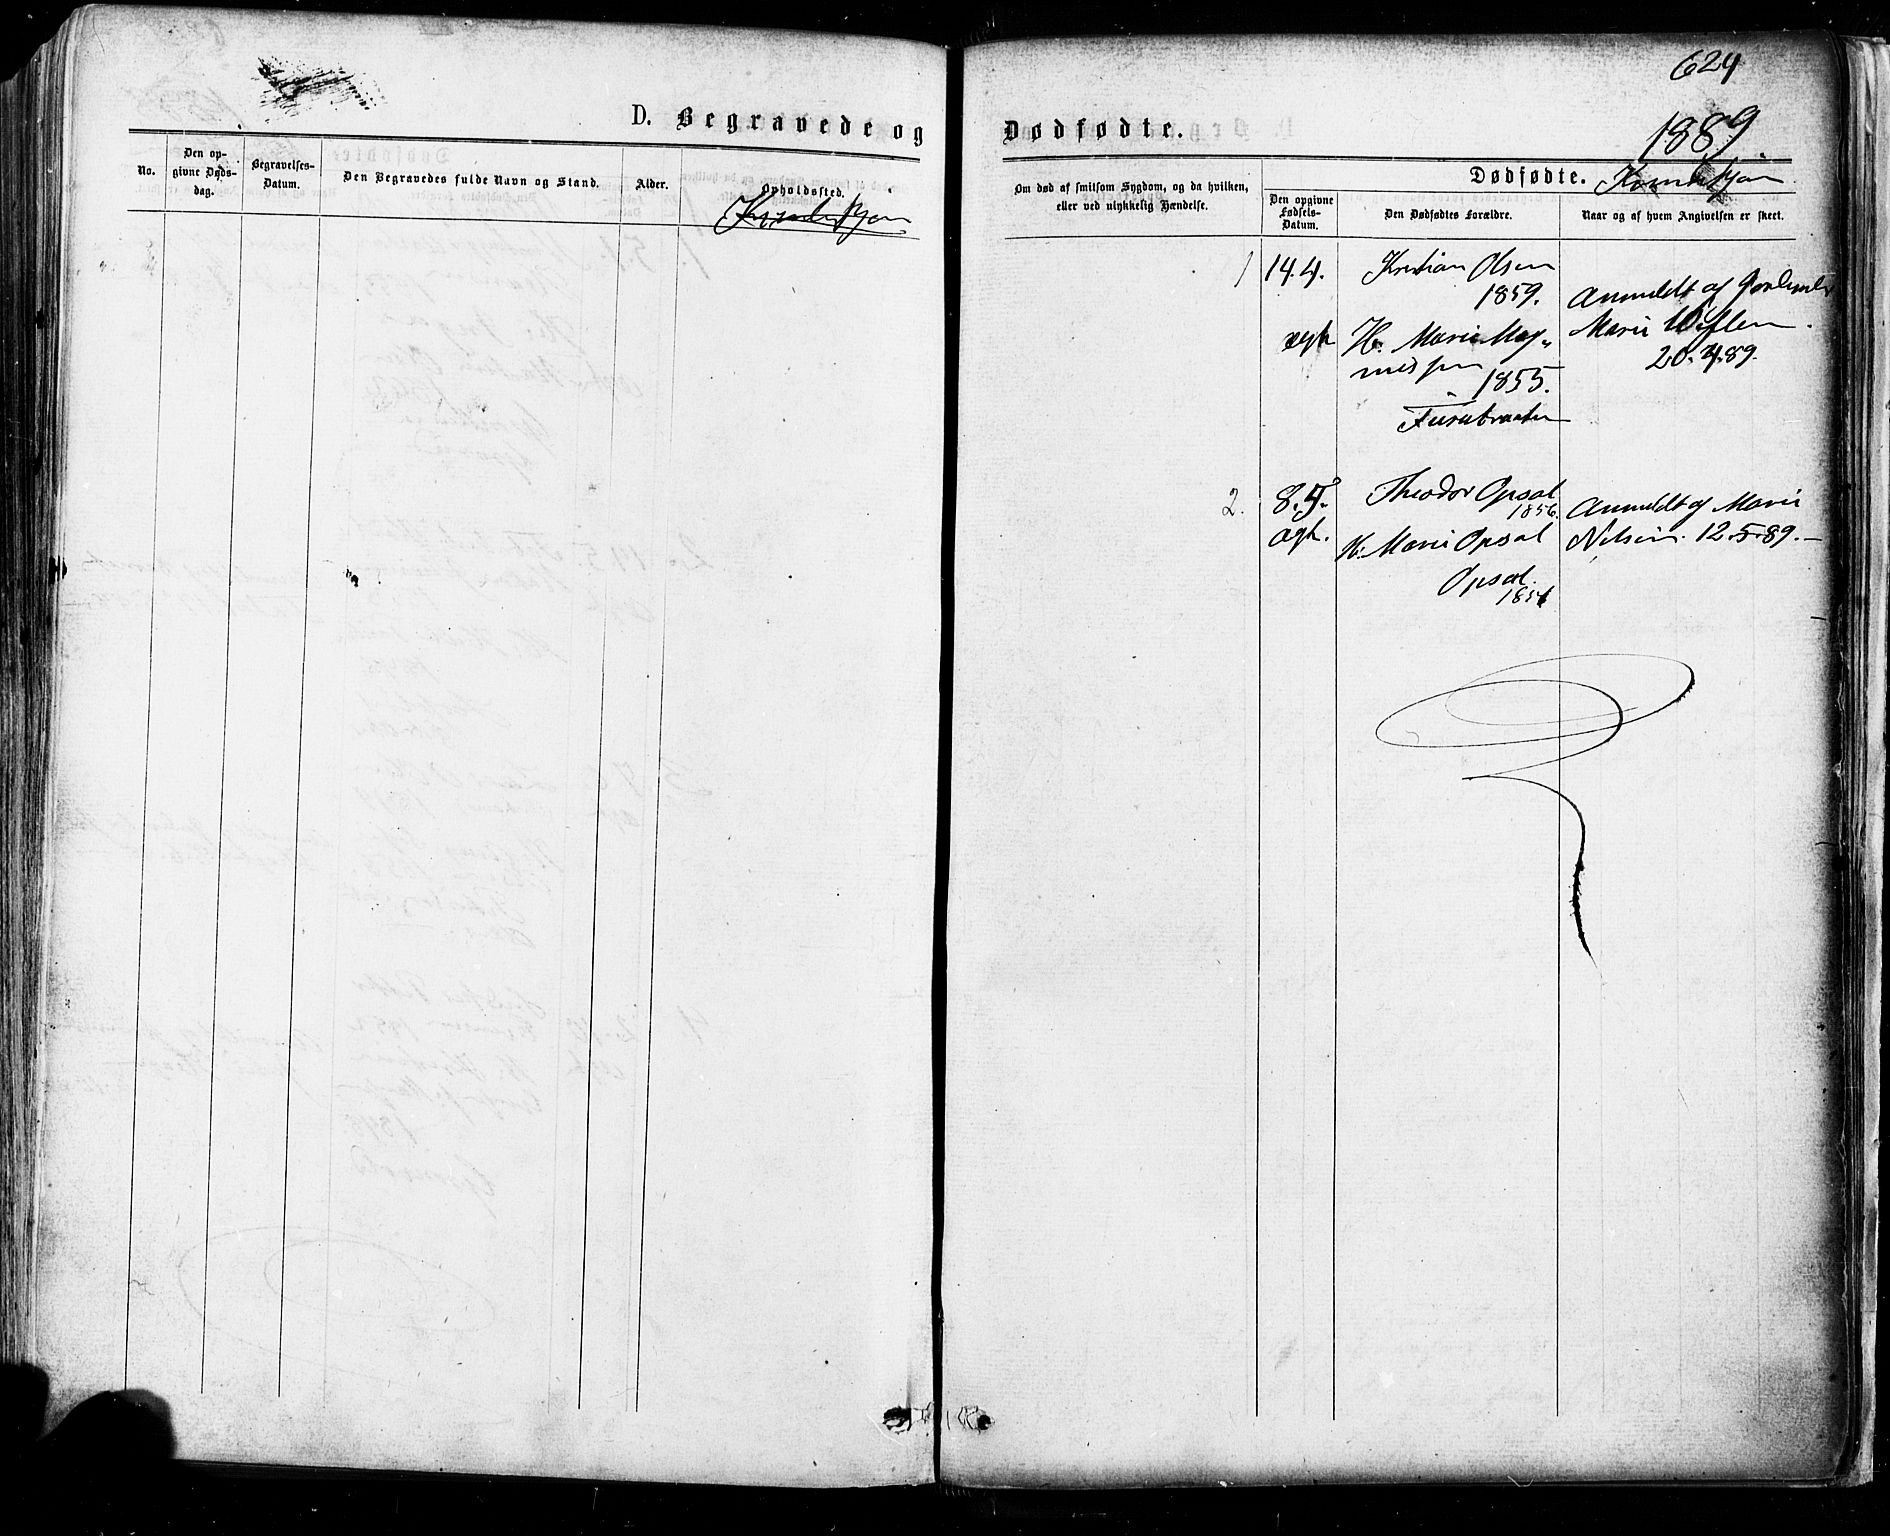 624
D. Begravede og Dødfødte.
1889
No.
Den opgivne Døds-dag.
Begravelses-Datum.
Den Begravedes fulde Navn og Stand.
Alder.
Opholdssted.
Om død af smitsom Sygdom, og da hvilken, eller ved ulykkelig Hændelse.
Dødfødte.
Den opgivne Fødsels-Datum.
Den Dødfødtes Forældre.
Naar og af hvem Angivelsen er skeet.
1 14.4. Kristian Olsen
1859.
ægte H. Marie Mag„
nussen
1855.
Furubraaten
Anmeldt af
Marie
20.4.89.
2. 8.5. Theodor Opsal
1856.
ægt. H. Marie Opsal
Opsal.
Anmeldt af Marie
Nilsen. 12.5.89.—